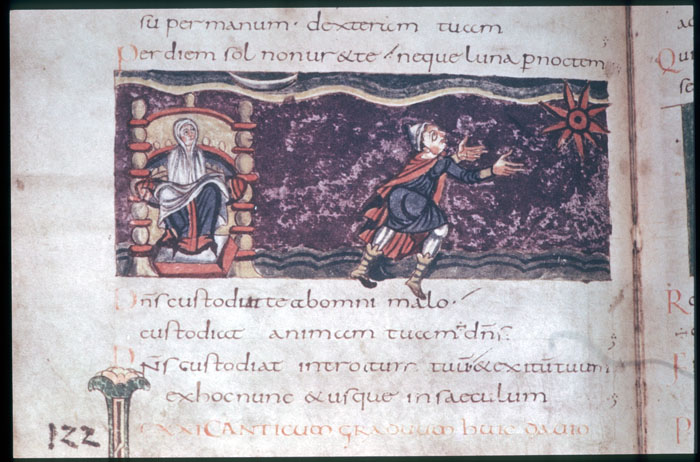 su per manum · dexteram tuam
Per diem sol non ur&te · neque luna p̄ noctem
Dn̄s custodit te ab omni malo ·
custodiat animam tuam dn̄s ·
Dn̄s custodiat introitum tuū & exitūtuum
exhocnunc & usque in saeculum
CXXI CANTICUM GRADUUM HUIC DAVID
122